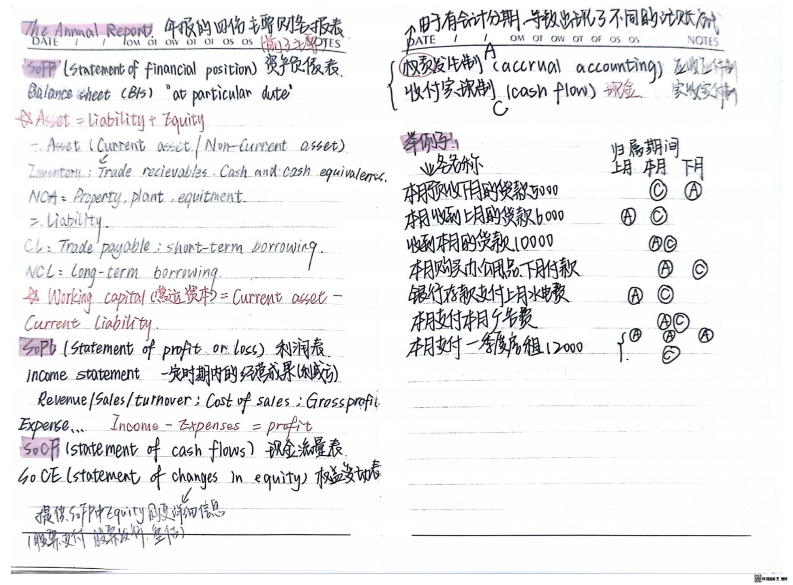 The Annual Report. 年报的四份主要财务报表
DATE / / OM OT OW OT OF OS OS NOTES
(前3主要)
SoFP (statement of financial position) 资产负债表.
Balance sheet (B/S) "at particular date"
☆Asset = Liability + Equity
一. Asset (Current asset / Non-Current asset)
Inventory; Trade recievables. Cash and cash equivalents.
NCA = Property, plant. equitment.
二. Liability.
CL: Trade payable; short-term borrowing.
NCL: Long-term borrowing.
☆ Working capital (营运资本) = Current asset -
Current liability.
SoPL (Statement of profit or loss) 利润表.
Income statement 一定时期内的经营成果(利或亏)
Revenue/Sales/turnover; Cost of sales; Gross profit
Expense... Income - Expenses = profit
SoCF (statement of cash flows) 现金流量表.
SoCE (statement of changes in equity) 权益变动表
提供SoFP中Equity的更详细信息
(股票支付 股票发行.
由于有会计分期, 导致出现了不同的记账方式
DATE / / OM OT OW OT OF OS OS NOTES
A
权责发生制 (accrual accounting) 应收应付制
收付实现制 (cash flow) 现金. 实收实付制
C
举例子: 归属期间
业务名称 上月 本月 下月
本月预收下月购货款5000 C A
本月收到上月购货款6000 A C
收到本月购货款10000 A C
本月购买办公用品、下月付款 A C
银行存款支付上月水电费 A C
本月支付本月广告费 A C
本月支付一季度房租12000 A A A
C